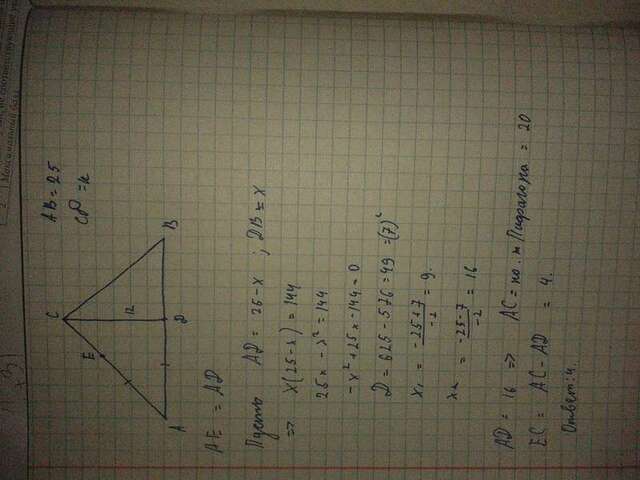 AB = 25
C
E
12
A
D
B
AE = AD
Пусть AD = 25-x ; DB = x
=> x(25-x) = 144
25x - x² = 144
-x² + 25x - 144 = 0
D = 625 - 576 = 49 = (7)²
x₁ = -25+7 / -2 = 9.
x₂ = -25-7 / -2 = 16
AD = 16 => AC = по т. Пифагора = 20
EC = AC - AD = 4.
Ответ: 4.